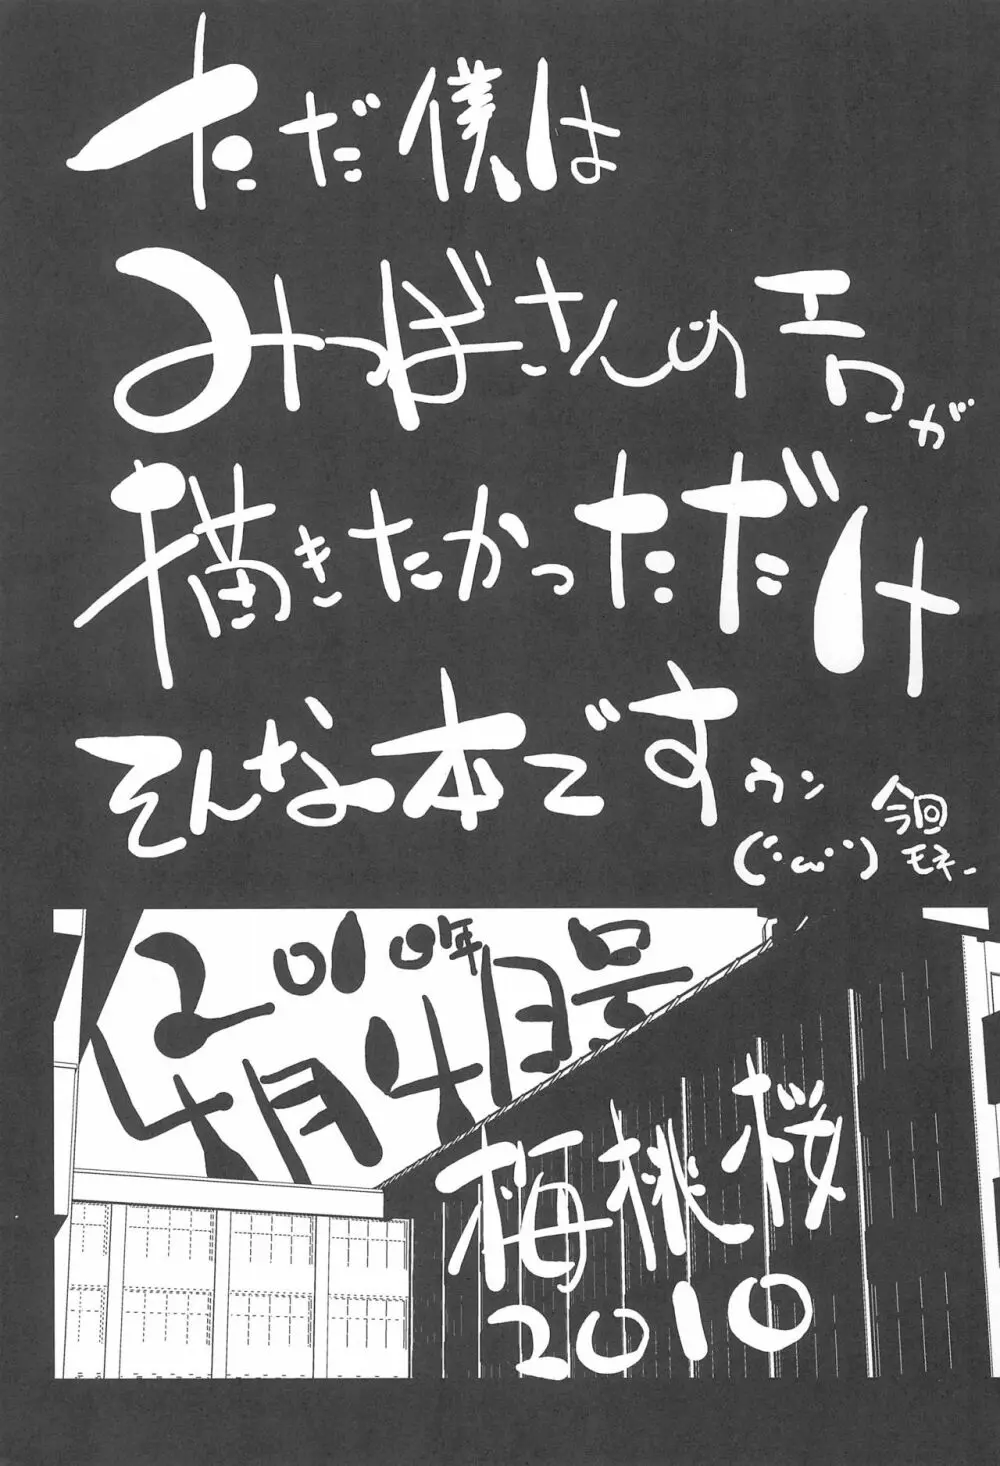 ただ僕は
みつばさんのエロが
描きたかっただけ
そんな本です
ウン
(´･ω･`)
今回
モネ
2010年
4月号
梅桃桜
2010